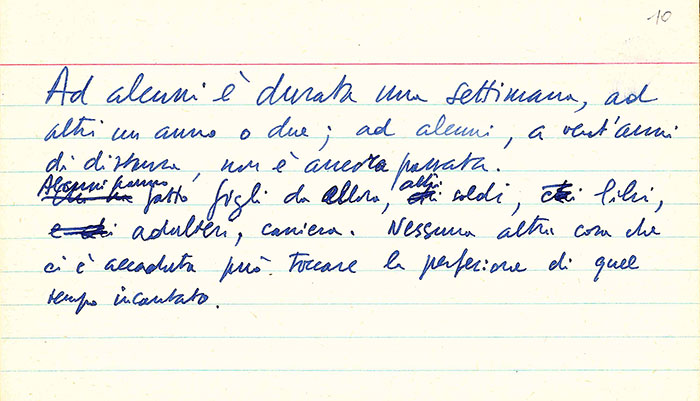 10
Ad alcuni è durata una settimana, ad
altri un anno o due; ad alcuni, a vent'anni
di distanza, non è ancora passata.
Alcuni hanno fatto figli da allora, altri soldi, libri,
adulteri, carriera. Nessuna altra cosa che
ci è accaduta può toccare la perfezione di quel
tempo incantato.